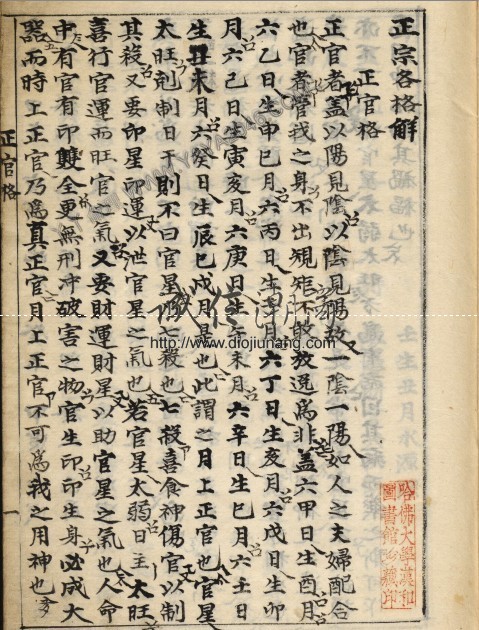 正宗各格解
正官格
正官者盖以陽見陰以陰見陽故一陰一陽如人之夫婦配合
也官者管我之身不出規矩不敢放逸為非盖六甲日生酉月
六乙日生申巳月六丙日生子月六丁日生亥月六戊日生卯
月六己日生寅亥月六庚日生午未月六辛日生巳月六壬日
生丑未月六癸日生辰巳戌月是也此謂之月上正官也官星
太旺剋制日干則不曰官星曰七殺也七殺喜食神傷官以制
其殺又要印星印運以泄官星之氣也若官星太弱日主太旺
喜行官運而旺官之氣又要財運財星以助官星之氣也人命
中有官有印雙全更無刑冲破害之物官生印印生身必成大
器而時上正官乃為真正官月上正官不可為我之用神也
正官格
一
www.diojiunang.com
哈佛大學漢和
圖書館珍藏印